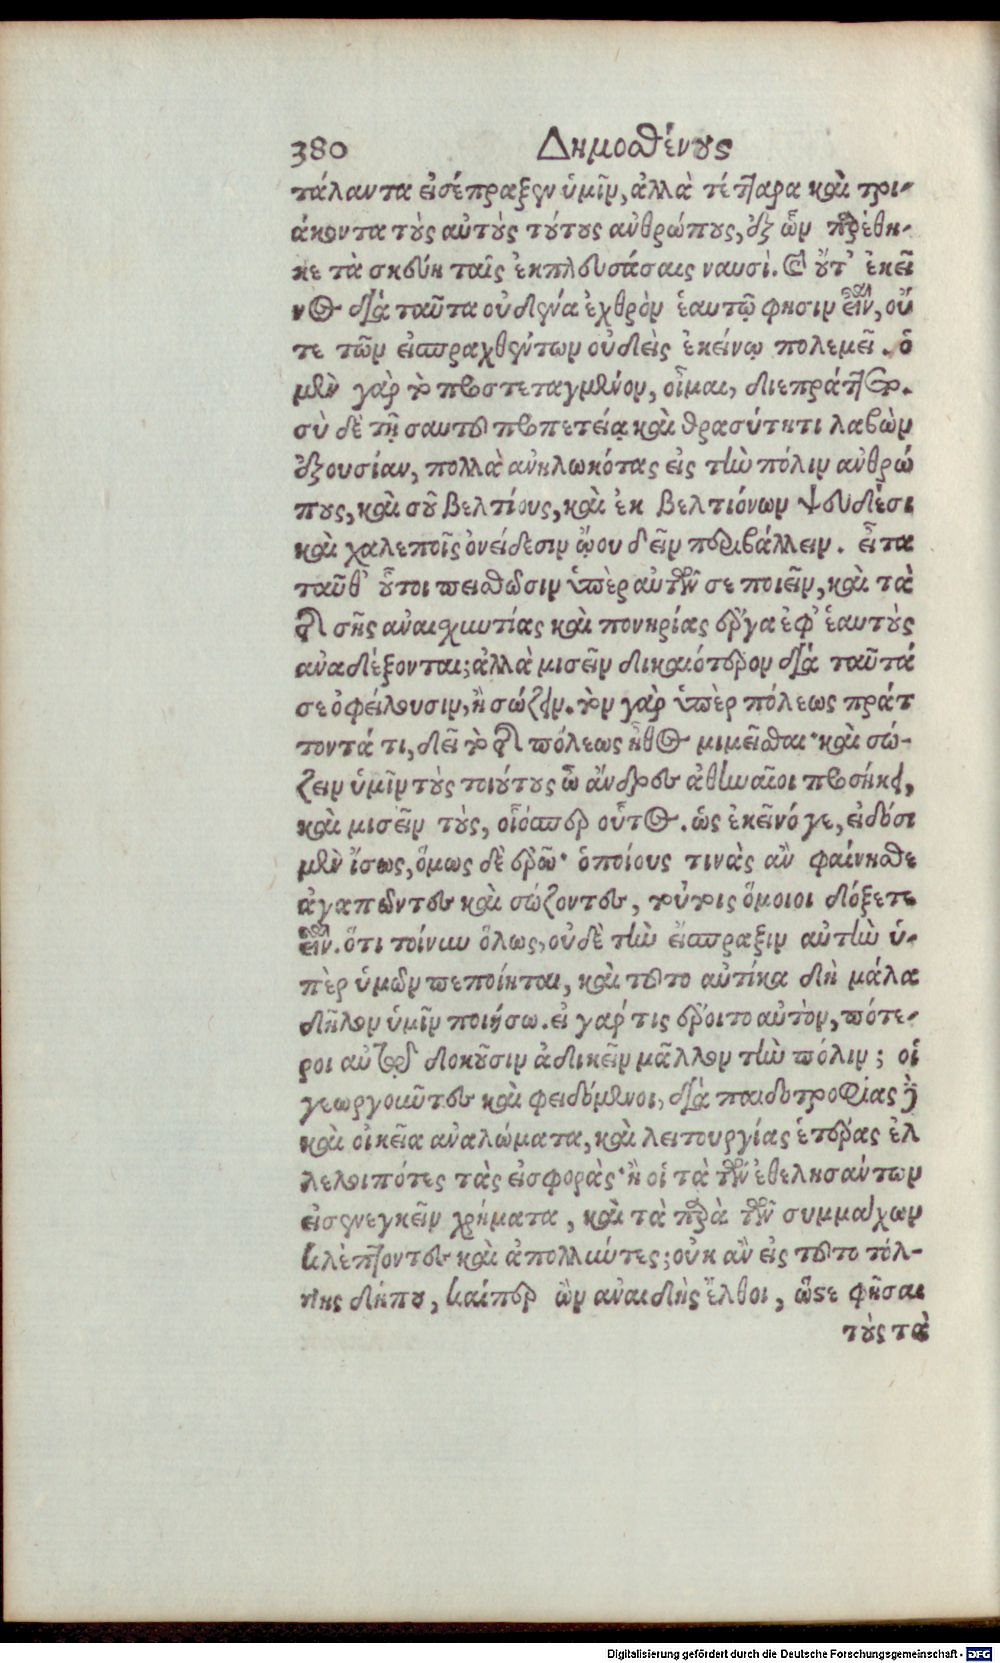 380 Δημοσθένους
τάλαντα εἰσέπραξεν ὑμῖν, ἀλλὰ τέτταρα καὶ τρι-
άκοντα τοὺς αὐτοὺς τούτους ἀνθρώπους, ἐξ ὧν παρέθη-
κε τὰ σκεύη ταῖς ἐκπλευσάσαις ναυσί. καὶ οὔτ’ ἐκεῖ
νος διὰ ταῦτα οὐδένα ἐχθρὸν ἑαυτῷ φησιν εἶναι, οὔ
τε τῶν εἰσπραχθέντων οὐδεὶς ἐκείνῳ πολεμεῖ. ὁ
μὲν γὰρ τὸ προστεταγμένον, οἶμαι, διεπράττετο.
σὺ δὲ τῇ σαυτοῦ προπετείᾳ καὶ θρασύτητι λαβὼν
ἐξουσίαν, πολλὰ ἀνηλωκότας εἰς τὴν πόλιν ἀνθρώ
πους, καὶ σοῦ βελτίους, καὶ ἐκ βελτιόνων ψευδέσι
καὶ χαλεποῖς ὀνείδεσιν ᾤου δεῖν περιβάλλειν. εἶτα
ταῦθ’ οὗτοι πεισθῶσιν ὑπὲρ αὑτῶν σε ποιεῖν, καὶ τὰ
τῆς σῆς ἀναισχυντίας καὶ πονηρίας ἔργα ἐφ’ ἑαυτοὺς
ἀναδέξονται; ἀλλὰ μισεῖν δικαιότερον διὰ ταῦτά
σε ὀφείλουσιν, ἢ σώζειν. τὸν γὰρ ὑπὲρ πόλεως πράτ
τοντά τι, δεῖ τὸ τῆς πόλεως ἦθος μιμεῖσθαι· καὶ σώ-
ζειν ὑμῖν τοὺς τοιούτους ὦ ἄνδρες ἀθηναῖοι προσήκει,
καὶ μισεῖν τοὺς, οἷόσπερ οὗτος. ὡς ἐκεῖνό γε, εἰδόσι
μὲν ἴσως, ὅμως δὲ ἐρῶ· ὁποίους τινὰς ἂν φαίνησθε
ἀγαπῶντες καὶ σώζοντες, τούτοις ὅμοιοι δόξετε
εἶναι. ὅτι τοίνυν ὅλως, οὐδὲ τὴν εἴσπραξιν αὐτὴν ὑ-
πὲρ ὑμῶν πεποίηται, καὶ τοῦτο αὐτίκα δὴ μάλα
δῆλον ὑμῖν ποιήσω. εἰ γάρ τις ἔροιτο αὐτὸν, πότε-
ροι αὐτῷ δοκοῦσιν ἀδικεῖν μᾶλλον τὴν πόλιν; οἱ
γεωργοῦντες καὶ φειδόμενοι, διὰ παιδοτροφίας δὲ
καὶ οἰκεῖα ἀναλώματα, καὶ λειτουργίας ἑτέρας ἐλ
λελοιπότες τὰς εἰσφοράς· ἢ οἱ τὰ τῶν ἐθελησάντων
εἰσενεγκεῖν χρήματα, καὶ τὰ παρὰ τῶν συμμάχων
κλέπτοντες καὶ ἀπολλύντες; οὐκ ἂν εἰς τοῦτο τόλ-
μης δήπου, καίπερ ὢν ἀναιδὴς ἔλθοι, ὥστε φῆσαι
τοὺς τὰ
Digitalisierung gefördert durch die Deutsche Forschungsgemeinschaft - DFG